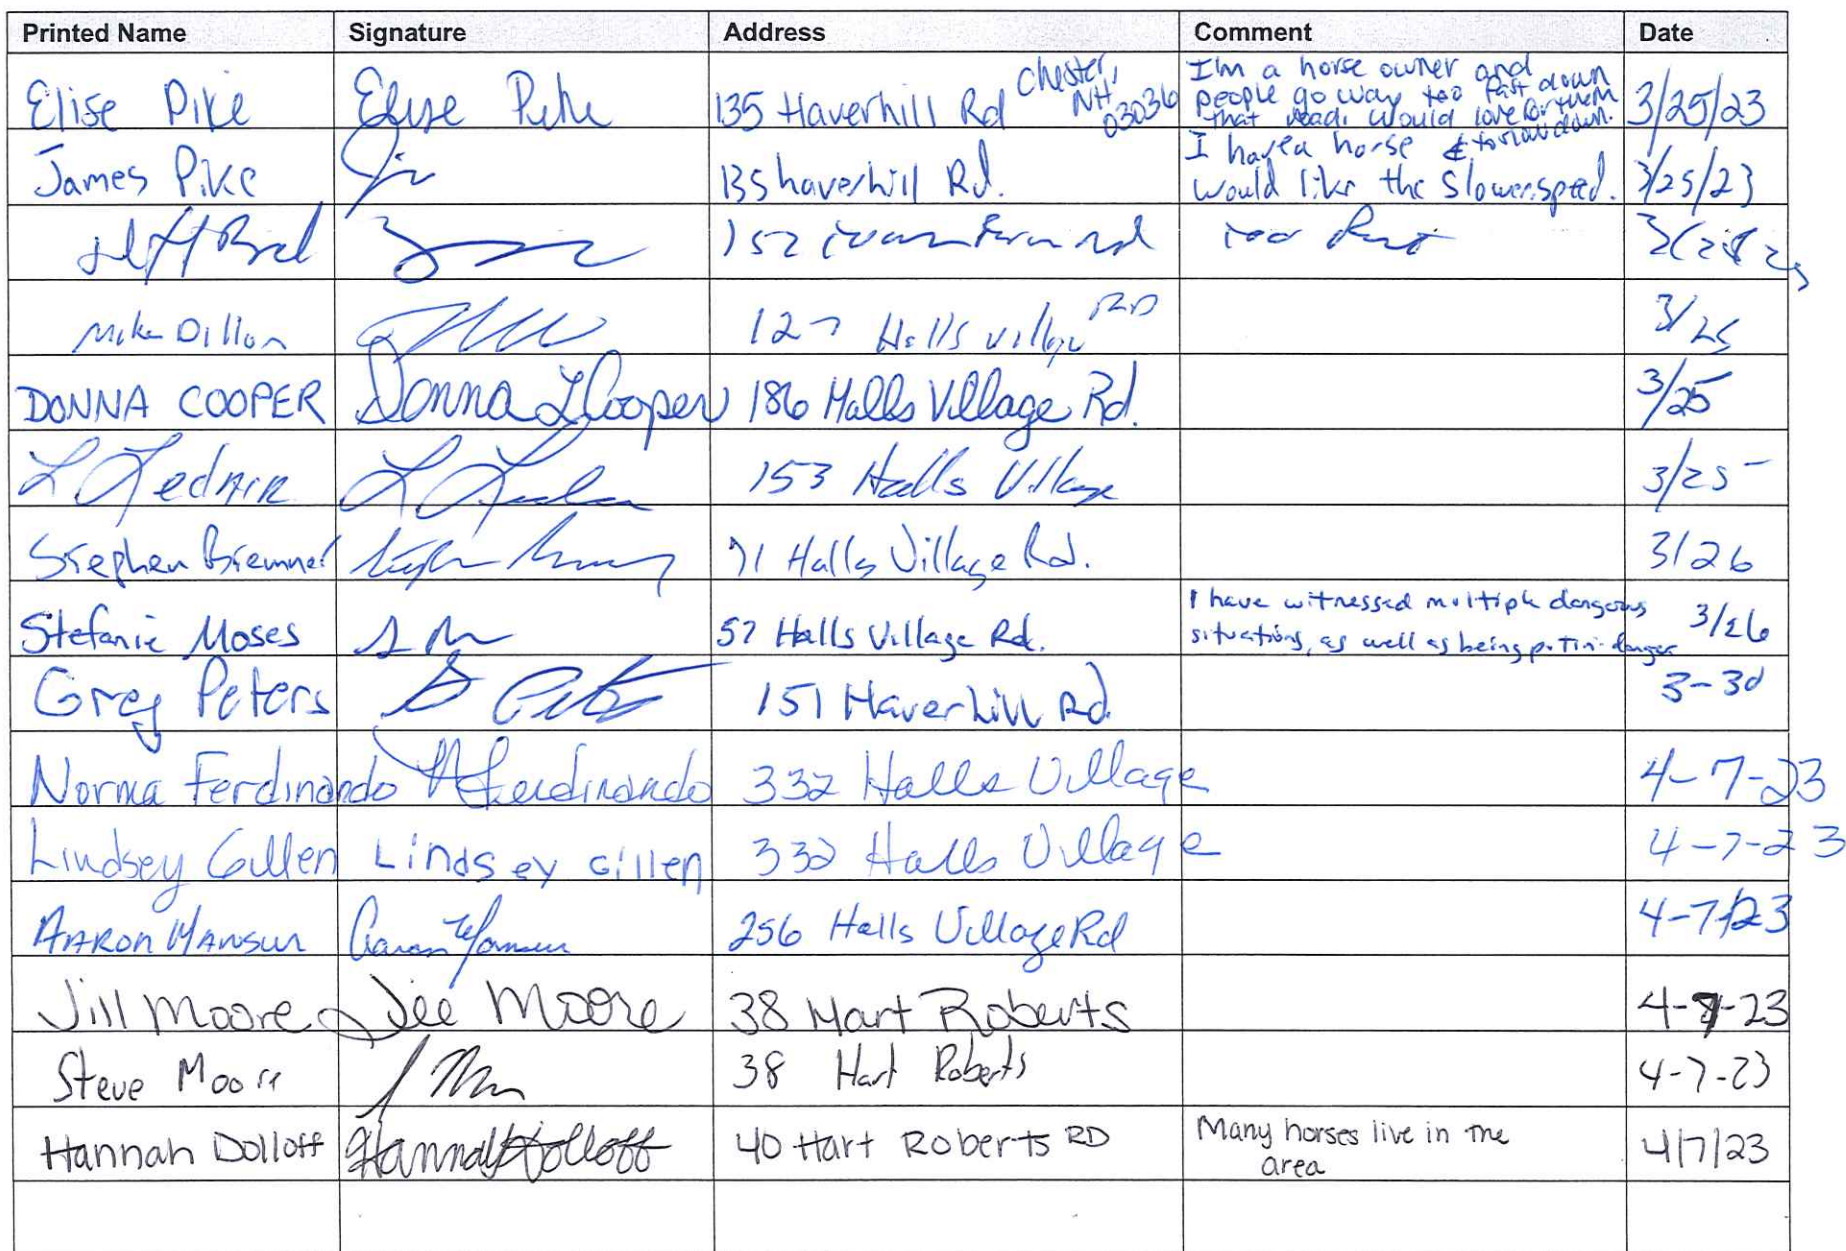 Printed Name Signature Address Comment Date
Elise Pike Elise Pike 135 Haverhill Rd Chester, NH 03036 I'm a horse owner and people go way too fast down that road. Would love for them to slow down. 3/25/23
James Pike 135 haverhill Rd. I have a horse & would like the slower speed. 3/25/23
152 Rd too fast
Mike Dillon 127 Halls Village RD 3/25
DONNA COOPER Donna L Cooper 186 Halls Village Rd. 3/25
L Lednar 153 Halls Village 3/25
Stephen Bremner 71 Halls Village Rd. 3/26
Stefanie Moses 57 Halls Village Rd. I have witnessed multiple dangerous situations, as well as being put in danger 3/26
Greg Peters 151 Haverhill Rd. 3-30
Norma Ferdinando N Ferdinando 332 Halls Village 4-7-23
Lindsey Gillen Lindsey Gillen 332 Halls Village 4-7-23
AARON MANSUR Aaron Mansur 256 Halls Village Rd 4-7-23
Jill Moore Jill Moore 38 Hart Roberts 4-7-23
Steve Moore 38 Hart Roberts 4-7-23
Hannah Dolloff Hannah Dolloff 40 Hart Roberts RD Many horses live in the area 4/7/23